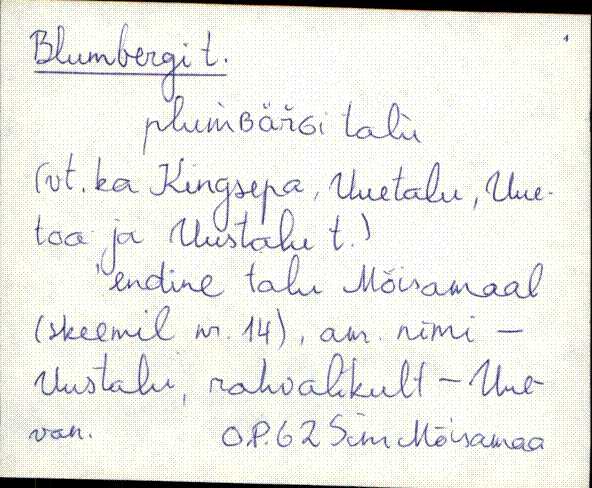 Blumbergi t.
plumʙäŕɢi talu
(vt. ka Kingsepa, Uuetalu, Uue-
toa ja Uustalu t.)
'endine talu Mõisamaal
(skeemil nr. 14), am. nimi –
Uustalu, rahvalikult – Uue-
van. O.P. 62 Sim Mõisamaa